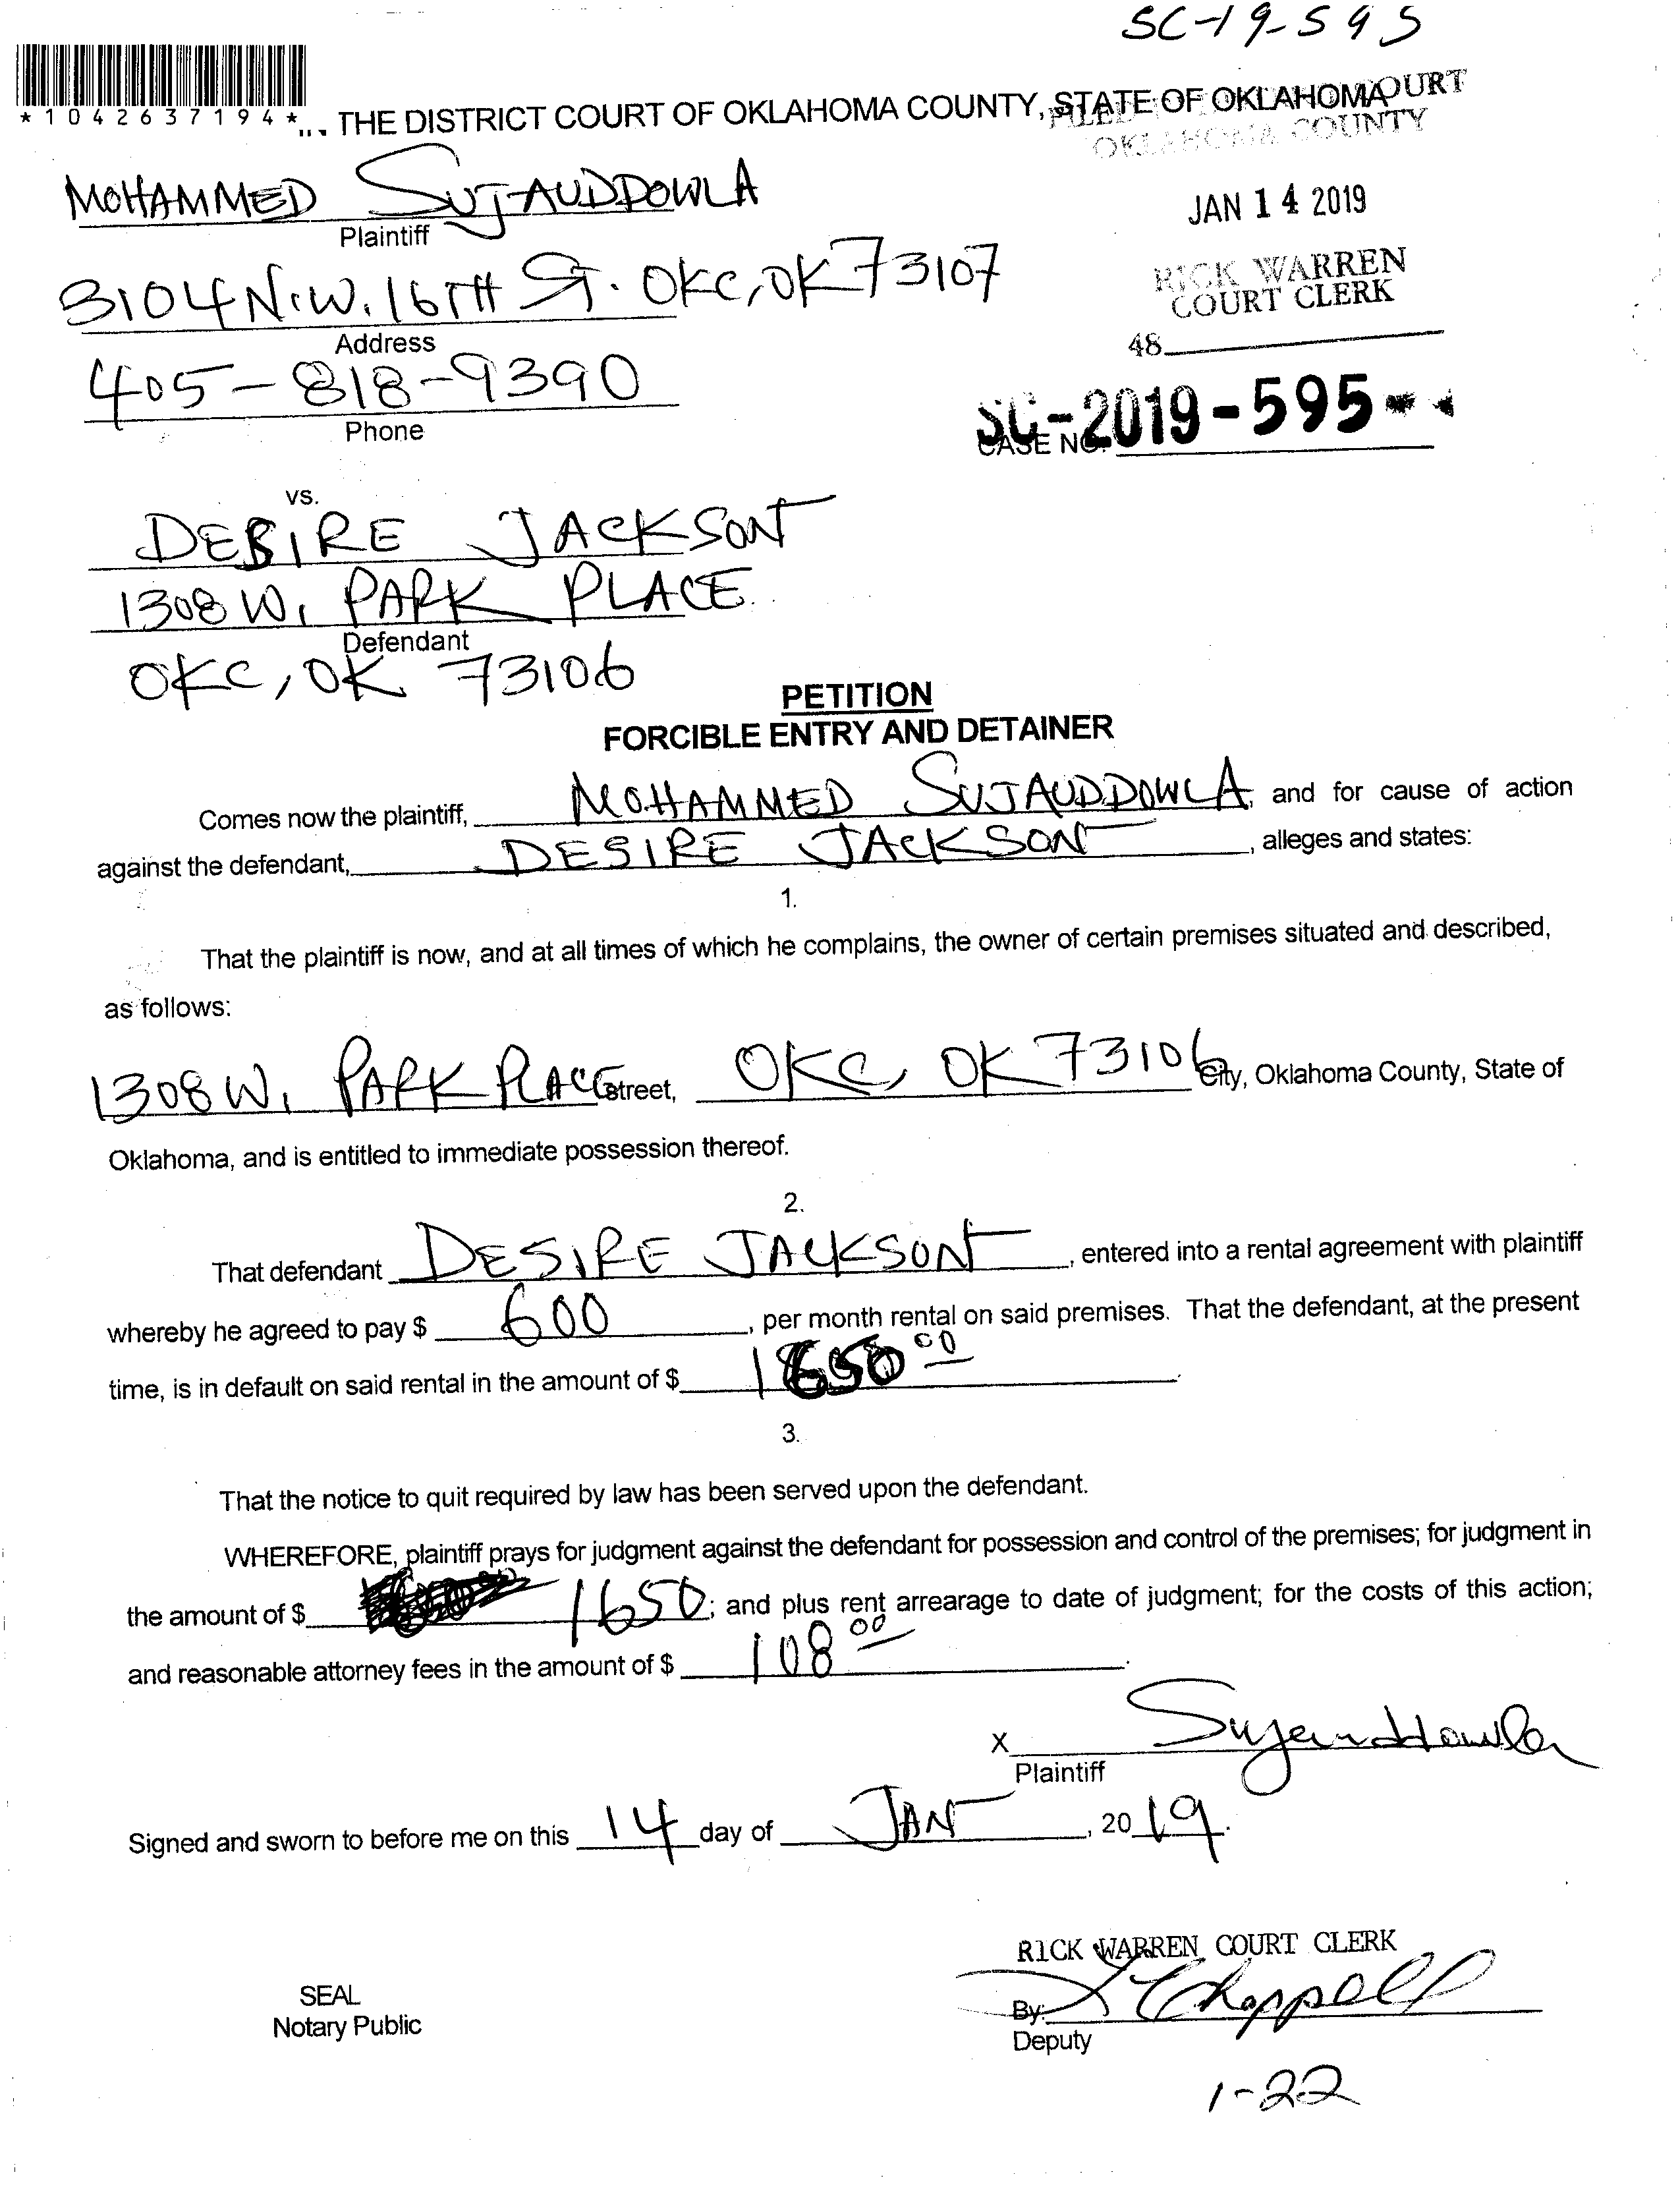 SC-19-595
*1042637194*
THE DISTRICT COURT OF OKLAHOMA COUNTY, STATE OF OKLAHOMA
FILED COURT
OKLAHOMA COUNTY
MOHAMMED SUJAUDDOWLA
Plaintiff
JAN 14 2019
3104 N.W. 16TH ST. OKC, OK 73107
Address
RICK WARREN
COURT CLERK
48
405-818-9390
Phone
SC-2019-595
CASE NO.
vs.
DESIRE JACKSON
1308 W. PARK PLACE
Defendant
OKC, OK 73106
PETITION
FORCIBLE ENTRY AND DETAINER
Comes now the plaintiff, MOHAMMED SUJAUDDOWLA, and for cause of action
against the defendant, DESIRE JACKSON, alleges and states:
1.
That the plaintiff is now, and at all times of which he complains, the owner of certain premises situated and described,
as follows:
1308 W. PARK PLACE street, OKC, OK 73106 City, Oklahoma County, State of
Oklahoma, and is entitled to immediate possession thereof.
2.
That defendant DESIRE JACKSON, entered into a rental agreement with plaintiff
whereby he agreed to pay $ 600, per month rental on said premises. That the defendant, at the present
time, is in default on said rental in the amount of $ 1650 00.
3.
That the notice to quit required by law has been served upon the defendant.
WHEREFORE, plaintiff prays for judgment against the defendant for possession and control of the premises; for judgment in
the amount of $ 1650; and plus rent arrearage to date of judgment; for the costs of this action;
and reasonable attorney fees in the amount of $ 108 00.
X Sujauddowla
Plaintiff
Signed and sworn to before me on this 14 day of JAN, 2019.
RICK WARREN COURT CLERK
SEAL
Notary Public
By: Chappell
Deputy
1-22